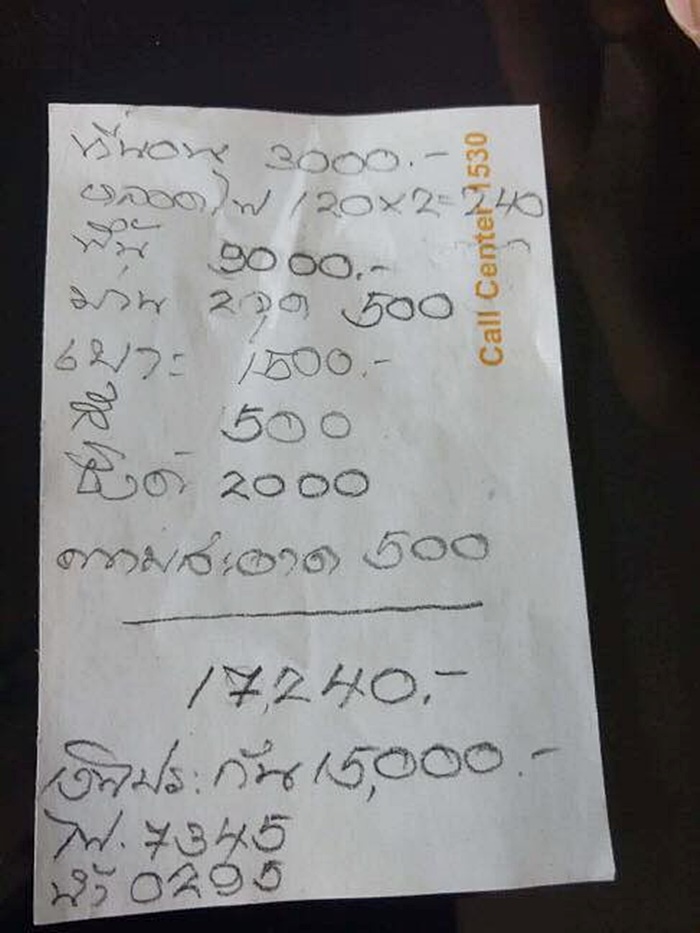 ที่นอน 3000.-
หลอดไฟ 120×2=240
พื้น 9000.-
ม่าน 2ชุด 500
เบาะ 1500.-
500
2000
ความสะอาด 500
17,240.-
เงินประกัน 15,000.-
ไฟ. 7345
น้ำ 0295
Call Center 1530